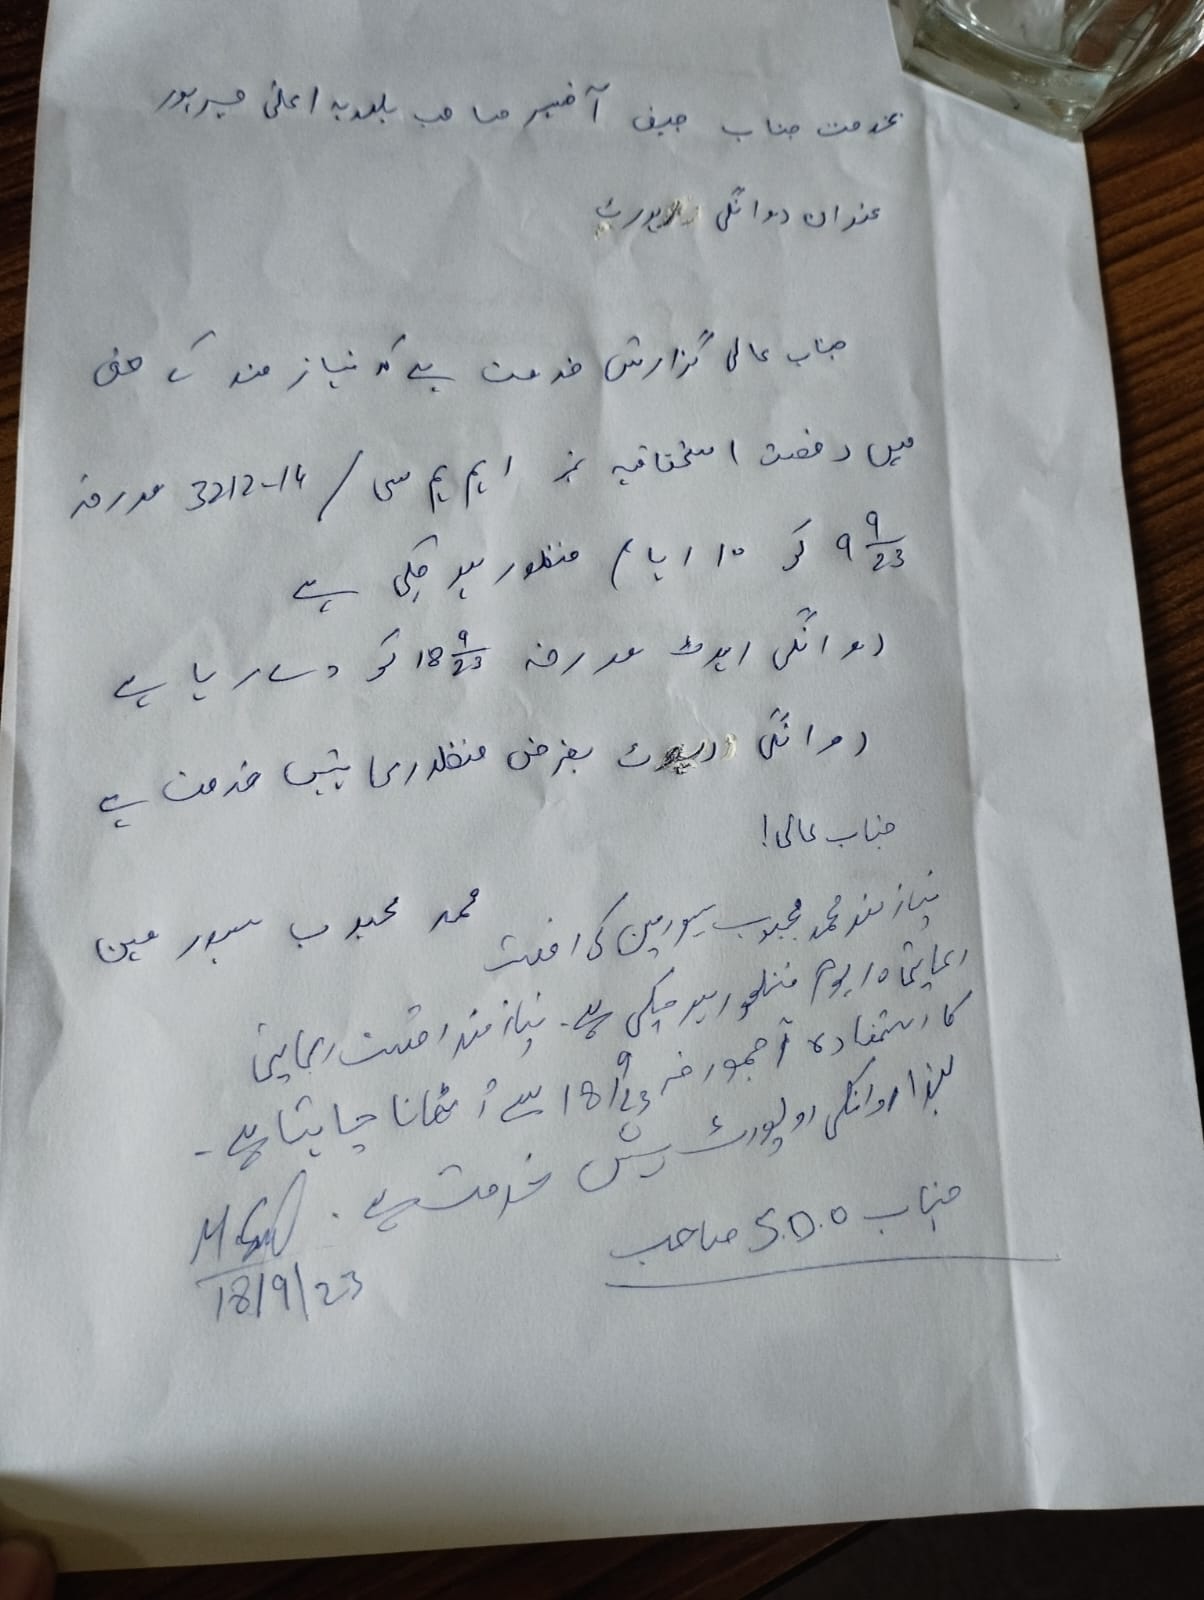 بخدمت جناب چیف آفیسر صاحب بلدیہ اعلیٰ میرپور
عنوان روانگی رپورٹ
جناب عالی گزارش خدمت ہے کہ نیاز مند کے حق
میں رخصت استحقاقیہ نمبر ایم ایم سی / 3212-14 مورخہ
9 9/23 کو 10 ایام منظور ہو چکی ہے
روانگی رپورٹ مورخہ 18 9/23 کو دے رہا ہے
روانگی رپورٹ بغرض منظوری پیش خدمت ہے
محمد محبوب سیور مین
جناب عالی!
نیاز مند محمد محبوب سیورمین کی رخصت
رعایتی 10 یوم منظور ہو چکی ہے۔ نیاز مند رخصت رعایتی
کا استفادہ آج مورخہ 18 9/23 سے اُٹھانا چاہتا ہے۔
لہٰذا روانگی رپورٹ پیش خدمت ہے۔
جناب S.D.O صاحب
18/9/23